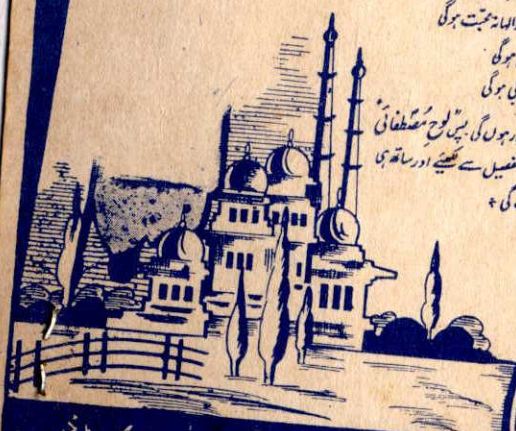 والہانہ محبت ہوگی
ہوگی
ی ہوگی
ر ہوں گی بس لوح مُصطفائی
تفصیل سے لکھیئے اور ساتھ ہی
گی